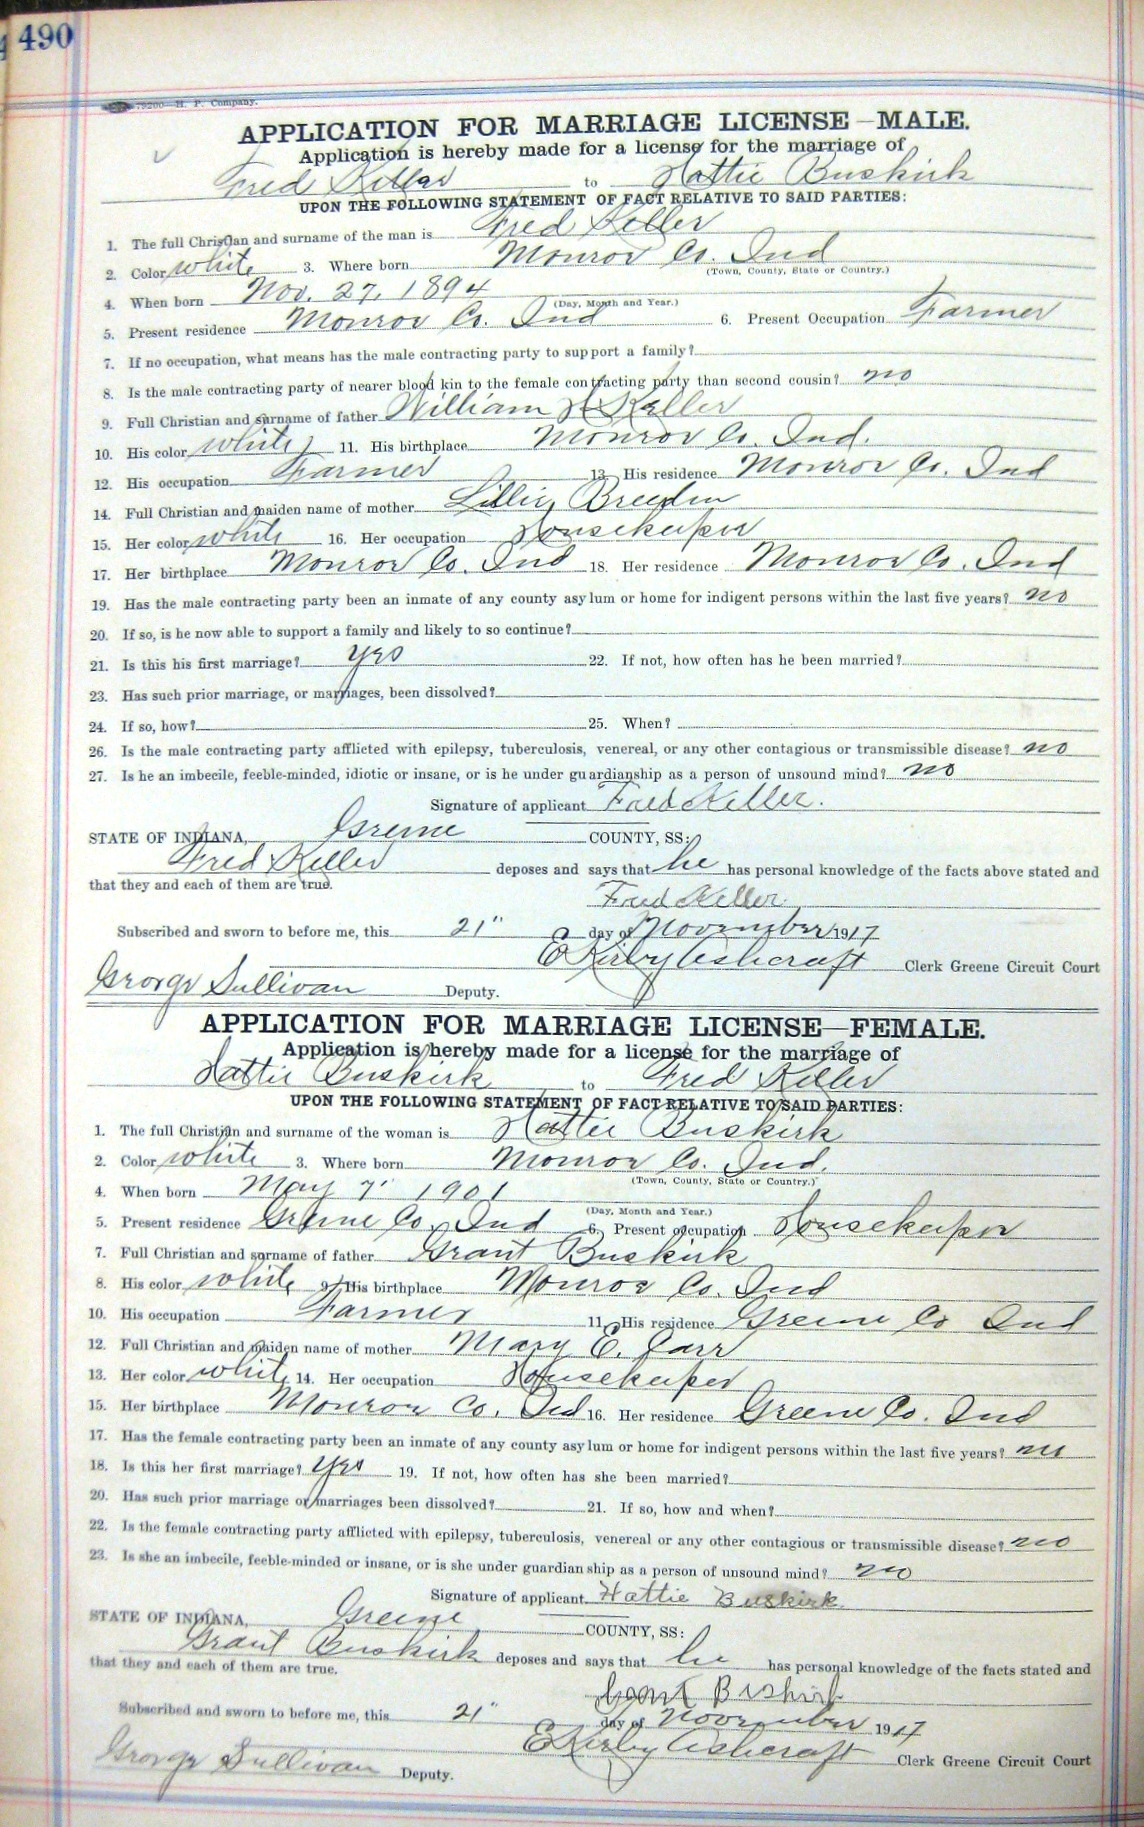 490
79200—H. P. Company.
APPLICATION FOR MARRIAGE LICENSE—MALE.
Application is hereby made for a license for the marriage of
Fred Keller to Hattie Buskirk
UPON THE FOLLOWING STATEMENT OF FACT RELATIVE TO SAID PARTIES:
1. The full Christian and surname of the man is Fred Keller
2. Color white 3. Where born Monroe Co. Ind
(Town, County, State or Country.)
4. When born Nov. 27, 1894
(Day, Month and Year.)
5. Present residence Monroe Co. Ind 6. Present Occupation Farmer
7. If no occupation, what means has the male contracting party to support a family?
8. Is the male contracting party of nearer blood kin to the female contracting party than second cousin? no
9. Full Christian and surname of father William H Keller
10. His color white 11. His birthplace Monroe Co. Ind.
12. His occupation Farmer 13. His residence Monroe Co. Ind
14. Full Christian and maiden name of mother Lillie Breeden
15. Her color white 16. Her occupation Housekeeper
17. Her birthplace Monroe Co. Ind 18. Her residence Monroe Co. Ind
19. Has the male contracting party been an inmate of any county asylum or home for indigent persons within the last five years? no
20. If so, is he now able to support a family and likely to so continue?
21. Is this his first marriage? yes 22. If not, how often has he been married?
23. Has such prior marriage, or marriages, been dissolved?
24. If so, how? 25. When?
26. Is the male contracting party afflicted with epilepsy, tuberculosis, venereal, or any other contagious or transmissible disease? no
27. Is he an imbecile, feeble-minded, idiotic or insane, or is he under guardianship as a person of unsound mind? no
Signature of applicant Fred Keller.
STATE OF INDIANA, Greene COUNTY, SS:
Fred Keller deposes and says that he has personal knowledge of the facts above stated and
that they and each of them are true.
Fred Keller
Subscribed and sworn to before me, this 21" day of November 1917
E Kirby Ashcraft Clerk Greene Circuit Court
George Sullivan Deputy.
APPLICATION FOR MARRIAGE LICENSE—FEMALE.
Application is hereby made for a license for the marriage of
Hattie Buskirk to Fred Keller
UPON THE FOLLOWING STATEMENT OF FACT RELATIVE TO SAID PARTIES:
1. The full Christian and surname of the woman is Hattie Buskirk
2. Color white 3. Where born Monroe Co. Ind.
(Town, County, State or Country.)
4. When born May 7" 1901
(Day, Month and Year.)
5. Present residence Greene Co. Ind 6. Present occupation Housekeeper
7. Full Christian and surname of father Grant Buskirk
8. His color white 9. His birthplace Monroe Co. Ind
10. His occupation Farmer 11. His residence Greene Co Ind
12. Full Christian and maiden name of mother Mary E. Carr
13. Her color white 14. Her occupation Housekeeper
15. Her birthplace Monroe Co. Ind 16. Her residence Greene Co. Ind
17. Has the female contracting party been an inmate of any county asylum or home for indigent persons within the last five years? no
18. Is this her first marriage? yes 19. If not, how often has she been married?
20. Has such prior marriage or marriages been dissolved? 21. If so, how and when?
22. Is the female contracting party afflicted with epilepsy, tuberculosis, venereal or any other contagious or transmissible disease? no
23. Is she an imbecile, feeble-minded or insane, or is she under guardianship as a person of unsound mind? no
Signature of applicant Hattie Buskirk
STATE OF INDIANA, Greene COUNTY, SS:
Grant Buskirk deposes and says that he has personal knowledge of the facts stated and
that they and each of them are true.
Grant Bskirk
Subscribed and sworn to before me, this 21" day of November 1917
E Kirby Ashcraft Clerk Greene Circuit Court
George Sullivan Deputy.